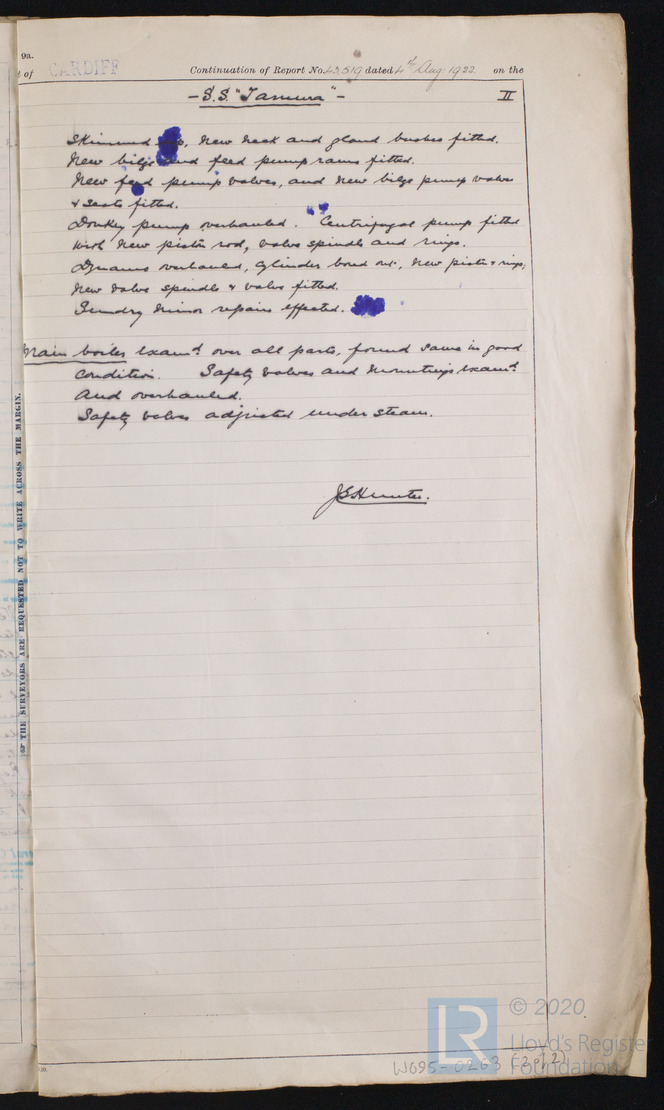 9a.
t of CARDIFF Continuation of Report No. 42,519 dated 4th Aug. 1922 on the
- S.S. "Tamura" - II
Skimmed, New neck and gland bushes fitted.
New bilge and feed pump rams fitted.
New feed pump valves, and New bilge pump valve
& seats fitted.
Donkey pump overhauled. Centrifugal pump fitted
with New piston rod, valve spindle and rings.
Dynamo overhauled, Cylinder bored out, New piston & rings,
New valve spindle & valve fitted.
Sundry minor repairs effected.
Main boiler Examd over all parts, found same in good
condition. Safety valves and mountings Examd.
And overhauled.
Safety valves adjusted under steam.
JS Hunter.
THE SURVEYORS ARE REQUESTED NOT TO WRITE ACROSS THE MARGIN.
LR
© 2020
Lloyd's Register
Foundation
W695-0263 (2 of 2)